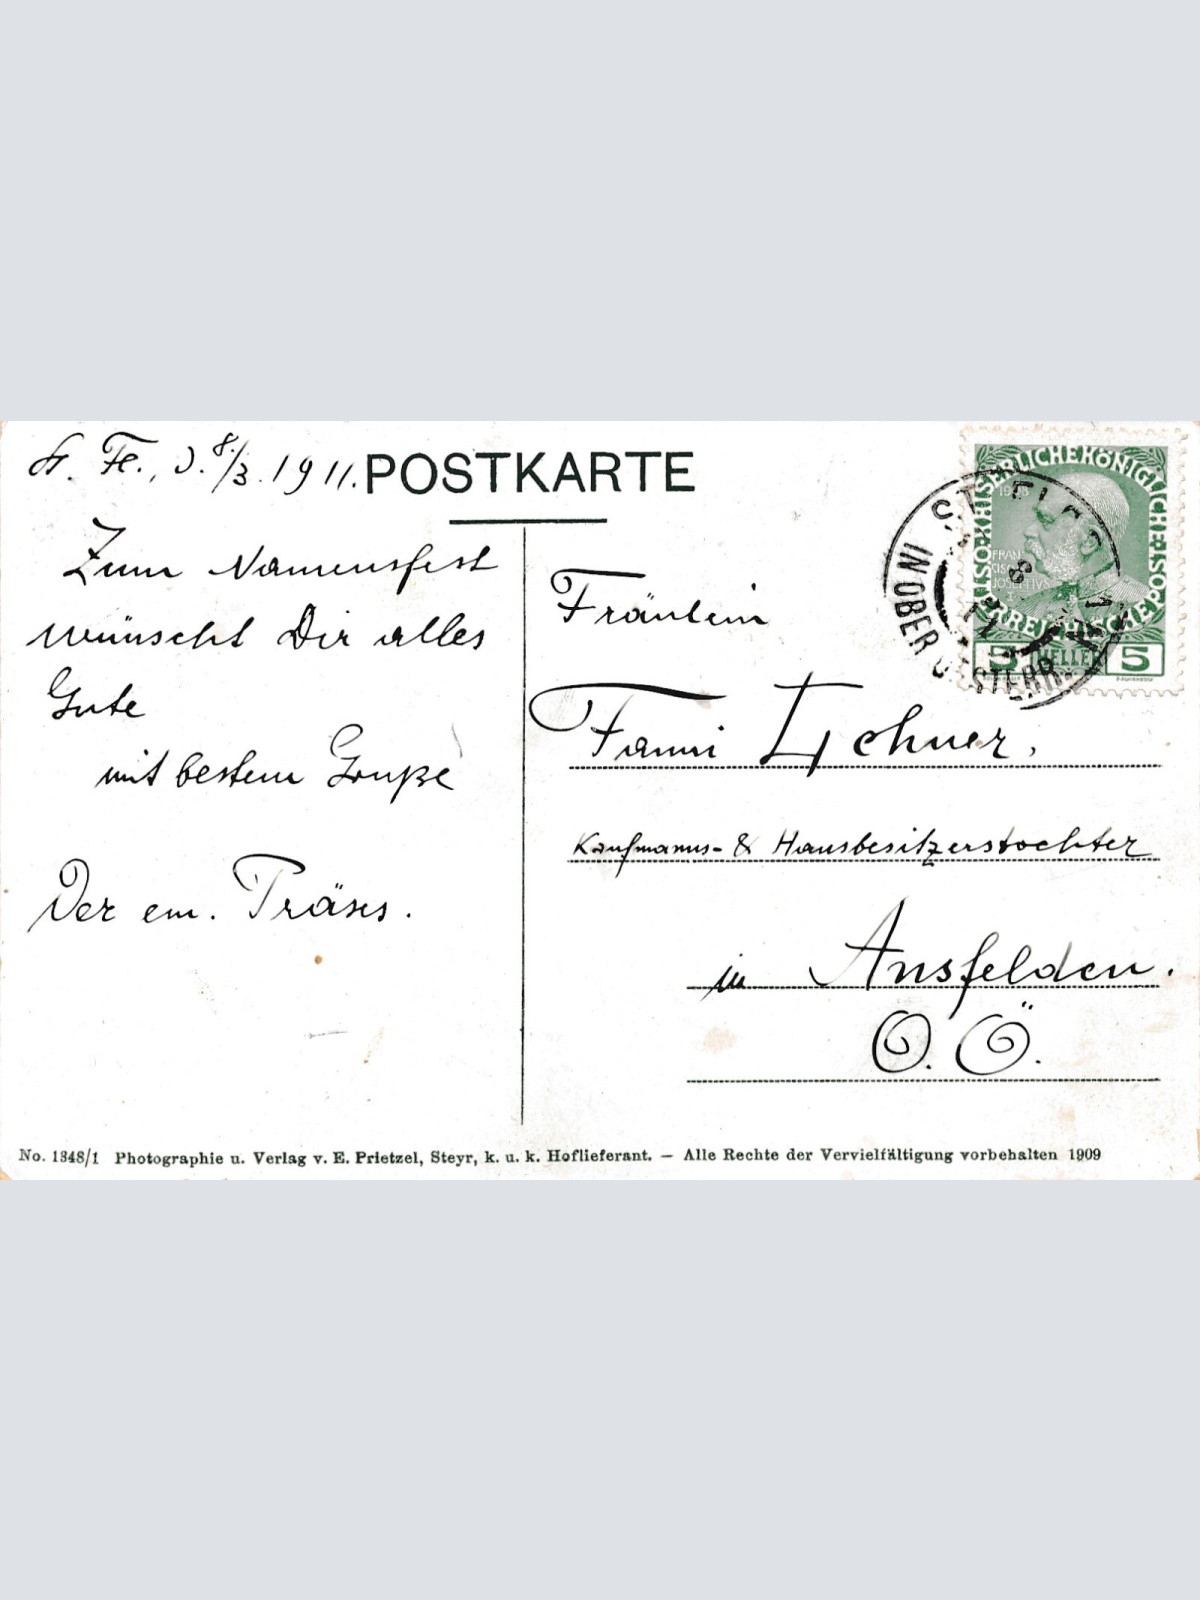 St. Fl., d. 8./3. 1911.
POSTKARTE
Zum Namensfest
wünscht Dir alles
Gute
mit bestem Gruße
Der em. Präses.
Fräulein
Fanni Lehner,
Kaufmanns- & Hausbesitzerstochter
in Ansfelden.
O. Ö.
KAISERLICHE KÖNIGLICHE
ÖSTERREICHISCHE POST
1908
FRAN
CISC
JOSEPHVS
I
5 HELLER 5
ST. FLORIAN
IN OBER OESTERR.
8
11
No. 1348/1 Photographie u. Verlag v. E. Prietzel, Steyr, k. u. k. Hoflieferant. — Alle Rechte der Vervielfältigung vorbehalten 1909